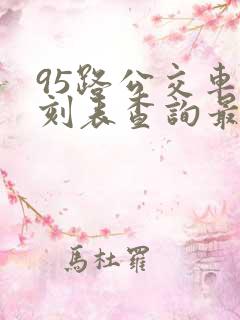 95路公交車
刻表查詢最
馬杜羅